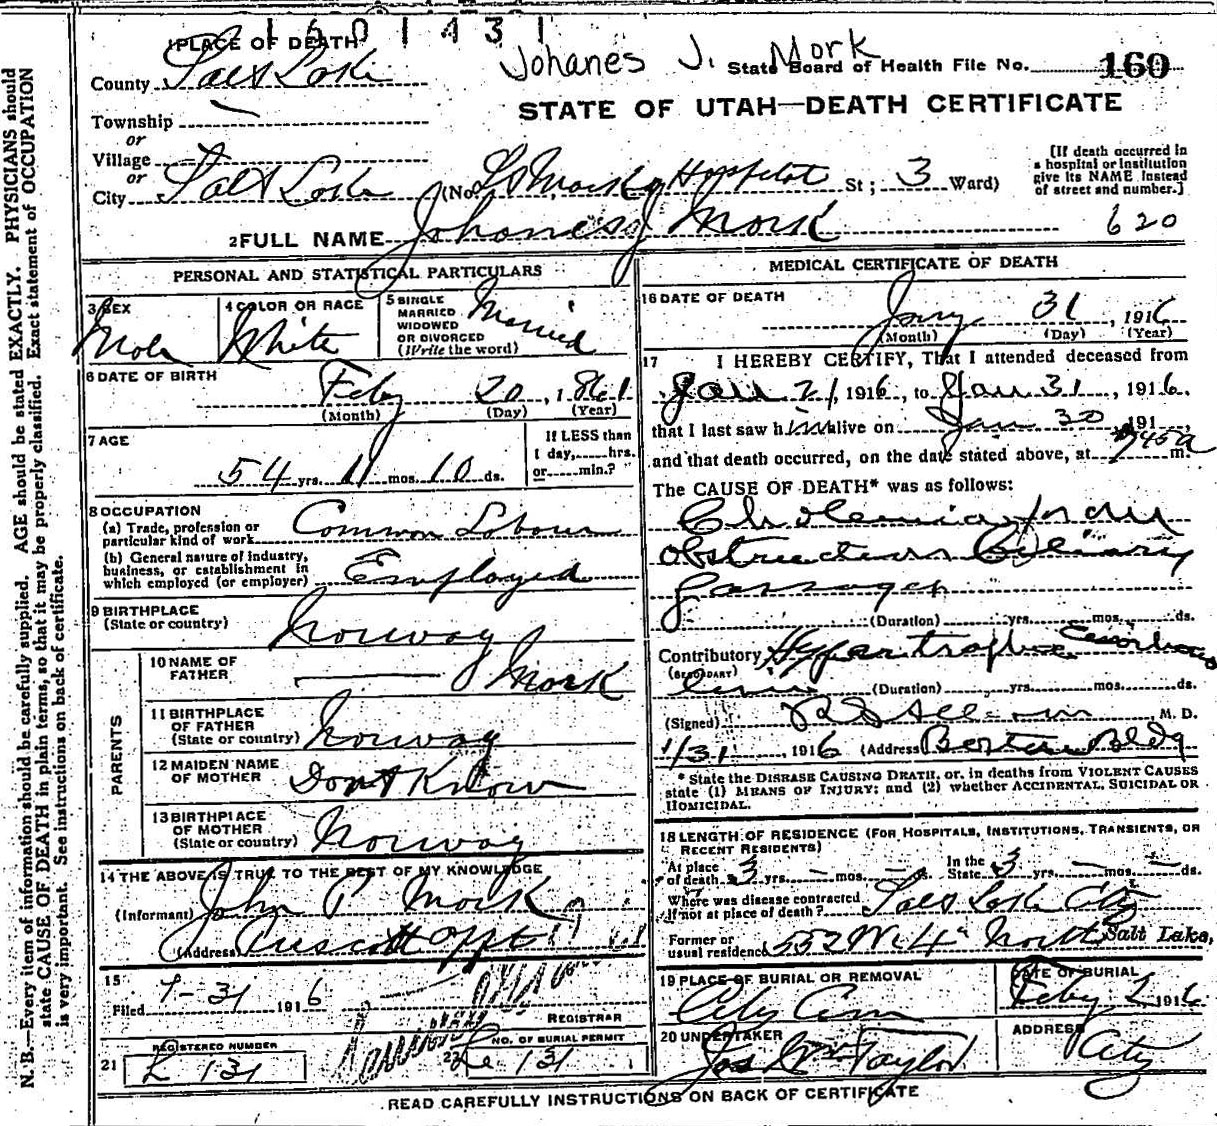 1601431
1 PLACE OF DEATH
Johanes J. Mork
County Salt Lake
State Board of Health File No. 160
STATE OF UTAH—DEATH CERTIFICATE
Township
or
Village
or
City Salt Lake (No. LDS Hospital St; 3 Ward)
[If death occurred in
a hospital or institution
give its NAME instead
of street and number.]
2 FULL NAME Johanes J Mork
620
PERSONAL AND STATISTICAL PARTICULARS
3 SEX
Male
4 COLOR OR RACE
White
5 SINGLE
MARRIED
WIDOWED
OR DIVORCED
(Write the word)
Married
6 DATE OF BIRTH
Feby 20, 1861
(Month) (Day) (Year)
7 AGE
54 yrs. 11 mos. 10 ds.
If LESS than
1 day, hrs.
or min.?
8 OCCUPATION
(a) Trade, profession or
particular kind of work Common Labour
(b) General nature of industry,
business, or establishment in
which employed (or employer) Employed
9 BIRTHPLACE
(State or country) Norway
PARENTS
10 NAME OF
FATHER — J Mork
11 BIRTHPLACE
OF FATHER
(State or country) Norway
12 MAIDEN NAME
OF MOTHER Dont Know
13 BIRTHPLACE
OF MOTHER
(State or country) Norway
14 THE ABOVE IS TRUE TO THE BEST OF MY KNOWLEDGE
(Informant) John P Mork
(Address)
15
Filed 1-31 1916
REGISTRAR
REGISTERED NUMBER
21 131
22 NO. OF BURIAL PERMIT
131
MEDICAL CERTIFICATE OF DEATH
16 DATE OF DEATH
Jany 31, 1916
(Month) (Day) (Year)
17 I HEREBY CERTIFY, That I attended deceased from
Jan 21, 1916, to Jan 31, 1916,
that I last saw him alive on Jan 30, 191 ,
and that death occurred, on the date stated above, at 745a m.
The CAUSE OF DEATH* was as follows:
Cholemia from
obstruction Biliary
passages
(Duration) yrs. mos. ds.
Contributory Hypertrophic
(SECONDARY)
(Duration) yrs. mos. ds.
(Signed) M. D.
1/31 1916 (Address) Boston Bldg
* State the DISEASE CAUSING DEATH, or, in deaths from VIOLENT CAUSES
state (1) MEANS OF INJURY; and (2) whether ACCIDENTAL, SUICIDAL OR
HOMICIDAL.
18 LENGTH OF RESIDENCE (FOR HOSPITALS, INSTITUTIONS, TRANSIENTS, OR
RECENT RESIDENTS)
At place
of death 3 yrs. — mos. — ds.
In the
State 3 yrs. — mos. — ds.
Where was disease contracted
if not at place of death? Salt Lake City
Former or
usual residence 552 W. 4th North Salt Lake,
19 PLACE OF BURIAL OR REMOVAL
City Cem
DATE OF BURIAL
Feby 2 1916
20 UNDERTAKER
Jos Wm Taylor
ADDRESS
City
READ CAREFULLY INSTRUCTIONS ON BACK OF CERTIFICATE
N. B.—Every item of information should be carefully supplied. AGE should be stated EXACTLY. PHYSICIANS should
state CAUSE OF DEATH in plain terms, so that it may be properly classified. Exact statement of OCCUPATION
is very important. See instructions on back of certificate.